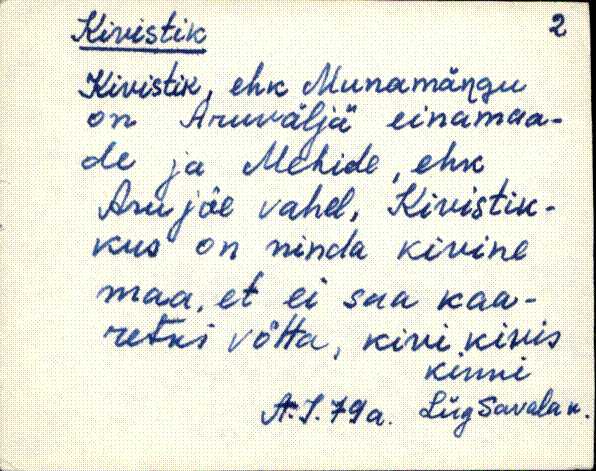 Kivistik 2
Kivistik, ehk Munamängu
on Aruväljä einamaa-
de ja Mehide, ehk
Aru jõe vahel, Kivistik-
kus on ninda kivine
maa, et ei saa kaa-
retki võtta, kivi kivis
kinni
A. J. 79a. Lüg Savala k.